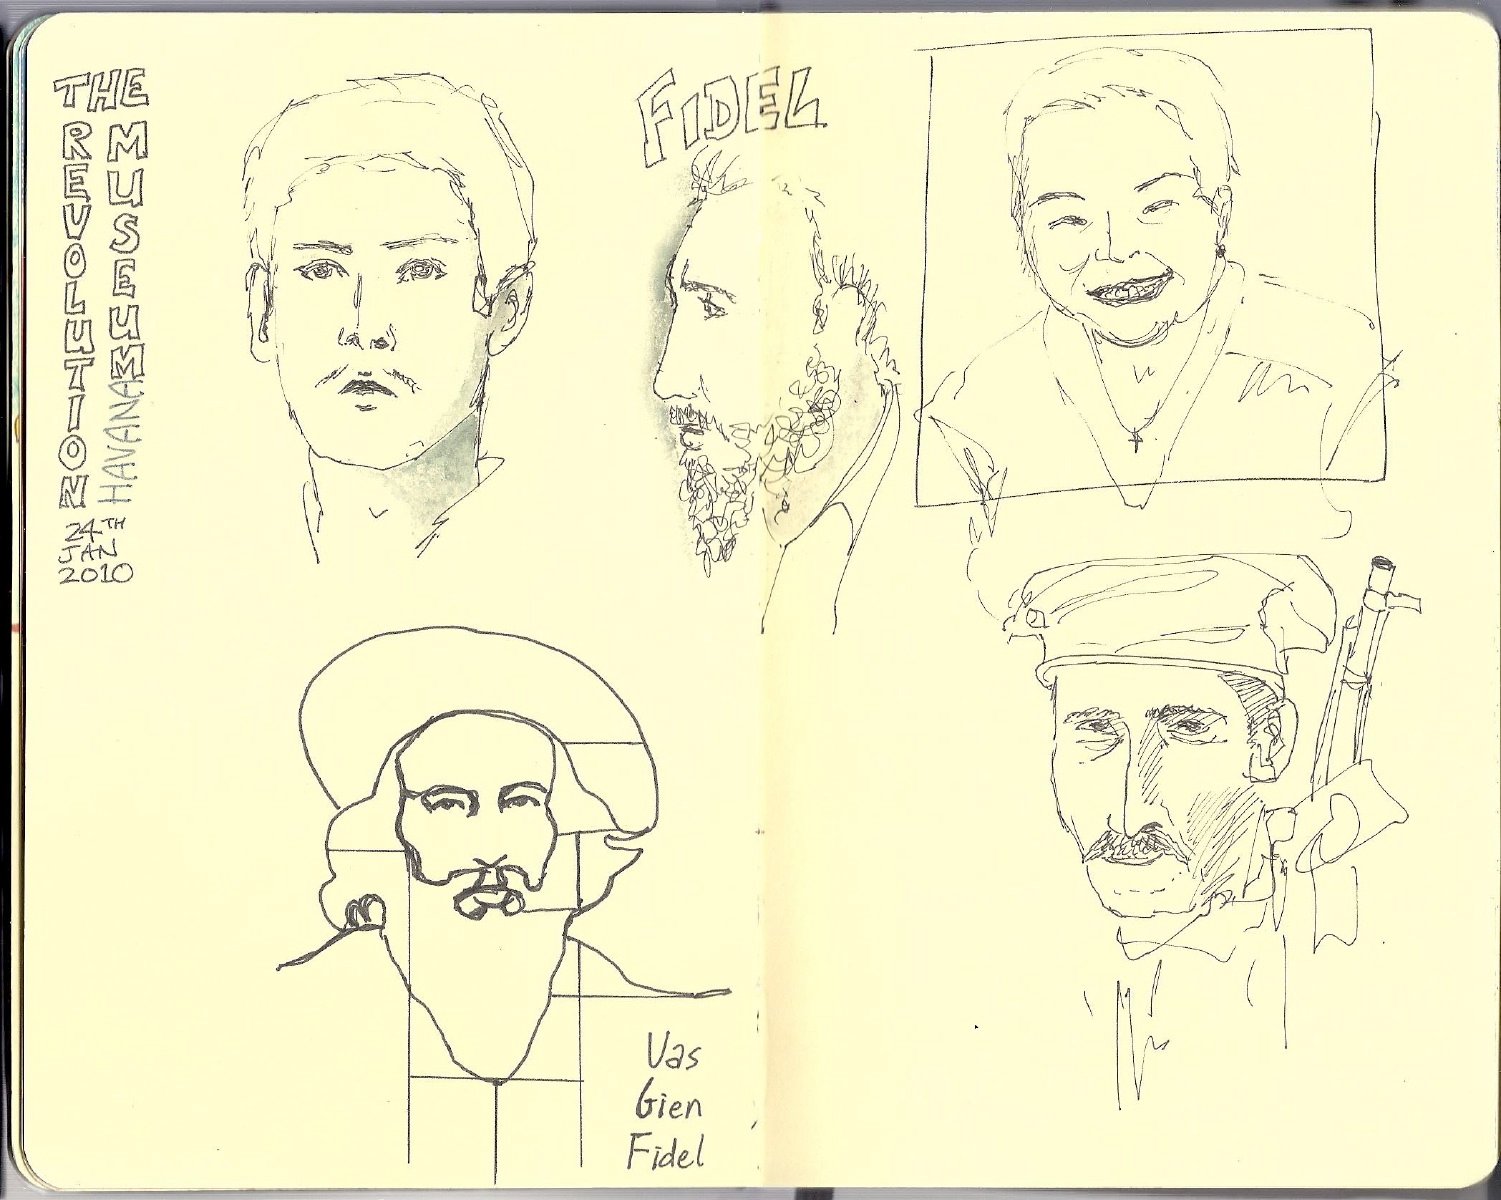 THE
REVOLUTION
MUSEUM
HAVANA
24TH
JAN
2010
FIDEL
Vas
Gien
Fidel